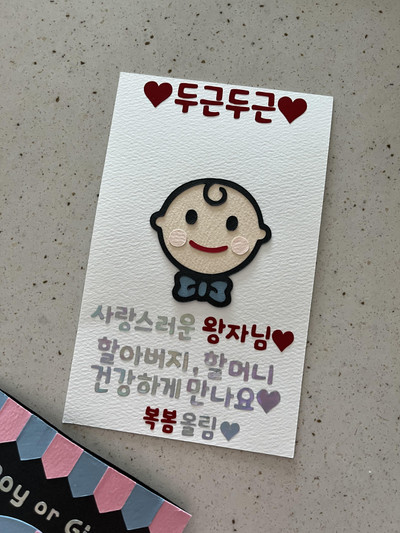 ♥두근두근♥
사랑스러운 왕자님♥
할아버지, 할머니
건강하게 만나요♥
복봄 올림♥
Boy or Gi